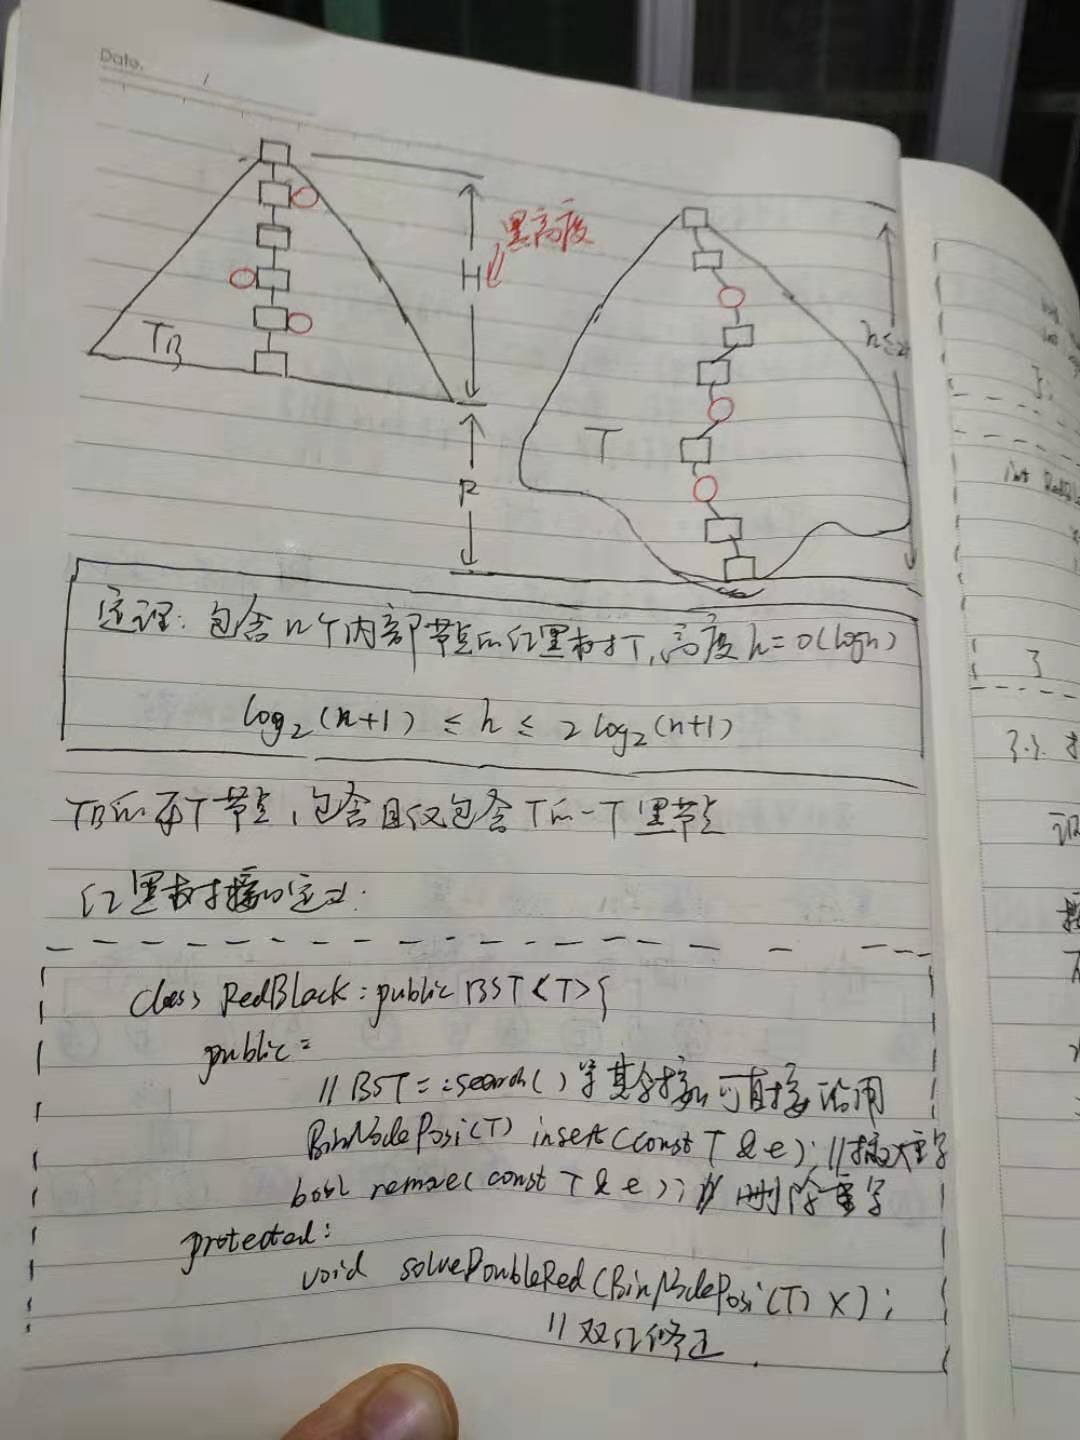 Date.
黑高度
H
TB
R
T
h≤2
定理：包含n个内部节点的红黑树T，高度h=O(logn)
log₂(n+1) ≤ h ≤ 2log₂(n+1)
TB的每个节点，包含且仅包含T的一个黑节点
红黑树接口定义：
class RedBlack : public BST<T>{
public:
// BST::search()等其余接口可直接沿用
BinNodePosi(T) insert(const T & e); //插入重写
bool remove(const T & e); // 删除重写
protected:
void solveDoubleRed(BinNodePosi(T) x);
//双红修正
int